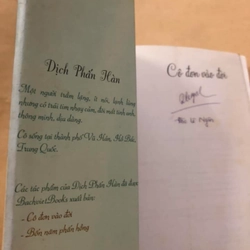 Dịch Phấn Hàn
Một người trầm lặng, ở nội, lạnh lùng
nhưng có trái tim nhạy cảm, đôi mắt tinh anh,
thông minh, dịu dàng.
Cô sống tại thành phố Vũ Hán, Hồ Bắc,
Trung Quốc.
Các tác phẩm của Dịch Phấn Hàn đã được
Bachviet Books xuất bản:
- Cô đơn vào đời
- Bốn năm phấn hồng
Cô đơn vào đời